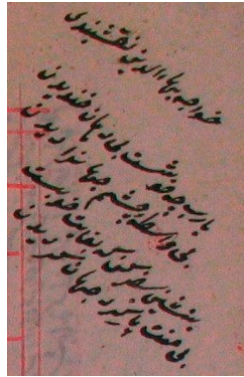 خواجه بهاءالدین نقشبندی
یا رب چه خوشست بی دهان خندیدن
بی واسطهٔ چشم جهان را دیدن
بنشین و سفر کن که بغایت خوبست
بی منت پا گرد جهان گردیدن